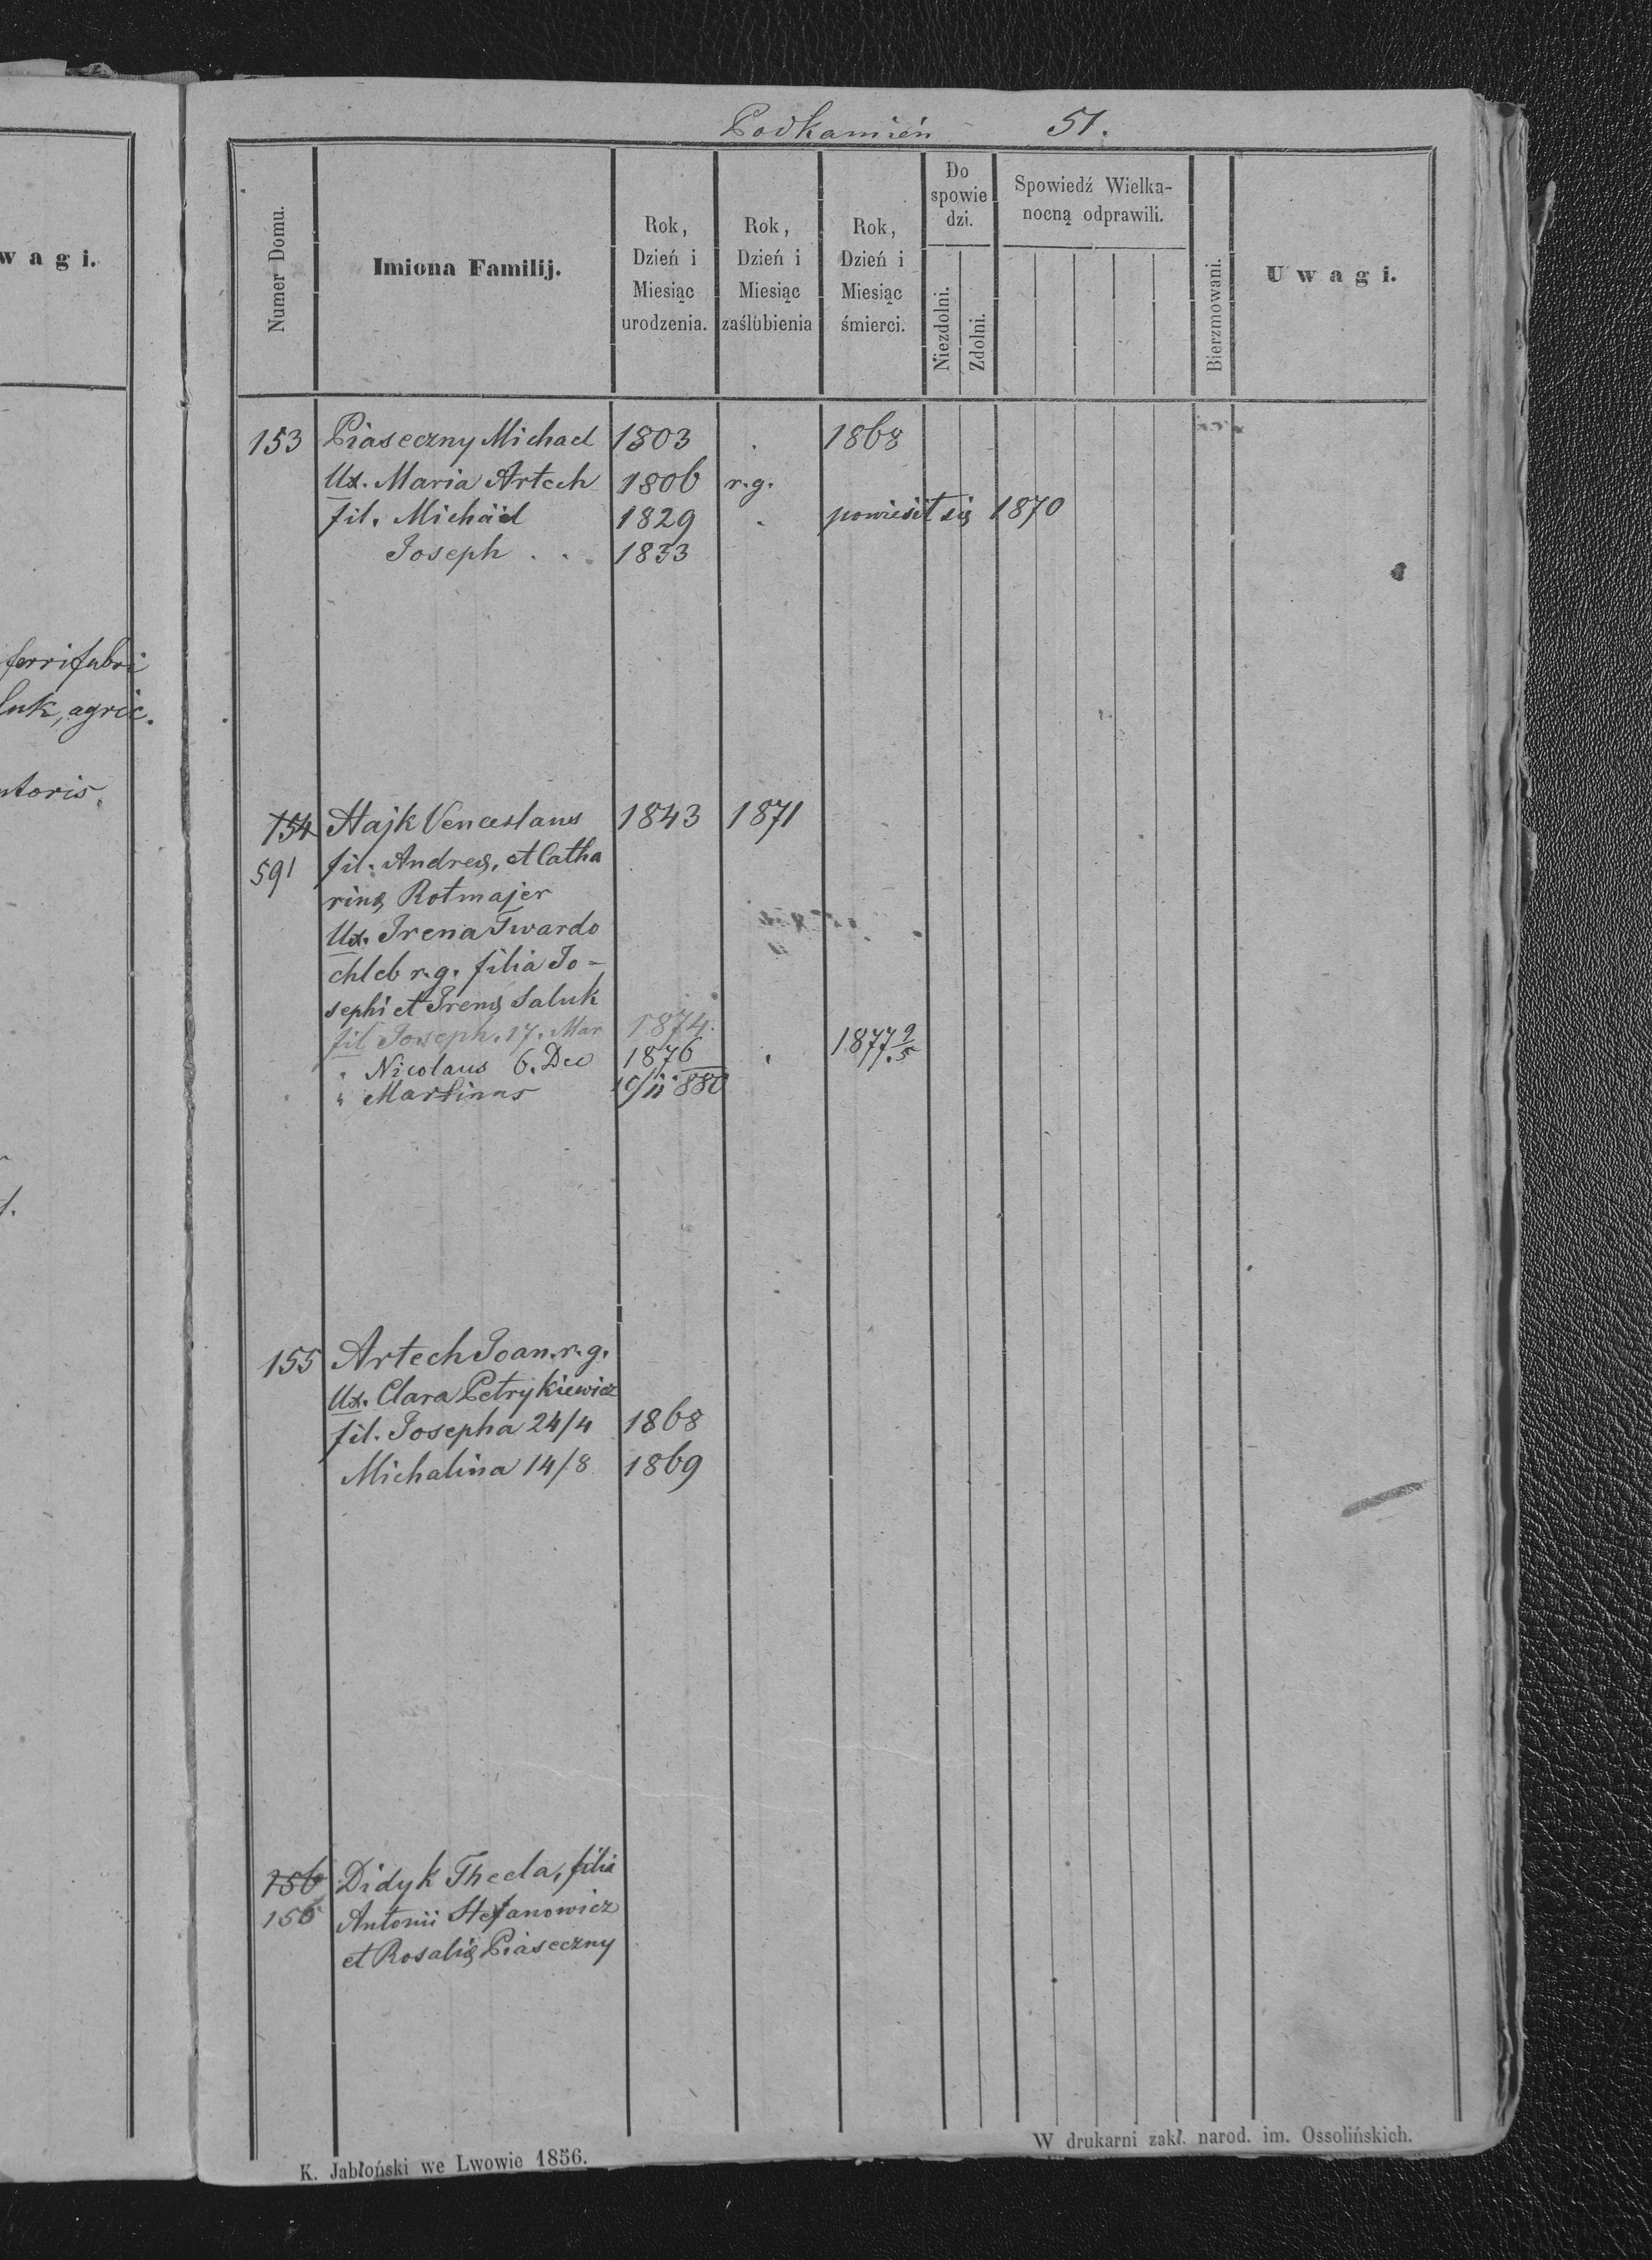 w a g i.
ferrifabri
agric.
Podkamień 51.
Numer Domu.
Imiona Familij.
Rok,
Dzień i
Miesiąc
urodzenia.
Rok,
Dzień i
Miesiąc
zaślubienia
Rok,
Dzień i
Miesiąc
śmierci.
Do
spowie
dzi.
Niezdolni.
Zdolni.
Spowiedź Wielka-
nocną odprawili.
Bierzmowani.
U w a g i.
153 Piaseczny Michael 1803 1868
Ux. Maria Artech 1806 r.g.
fil. Michäel 1829 powiesił się 1870
Joseph . . . 1833
154 Hajk Venceslaus 1843 1871
591 fil. Andreę, et Catha
rinę Rotmajer
Ux. Irena Twardo
chleb r.g. filia Jo-
sephi et Irenę Saluk
fil Joseph. 17. Mar 1874.
" Nicolaus 6. Dec 1876 1877 9/5
" Martinus 10/11 880
155 Artech Joan. r. g.
Ux. Clara Petrykiewicz
fil. Josepha 24/4 1868
Michalina 14/8 1869
156 Didyk Thecla, filia
156 Antonii Stefanowicz
et Rosalię Piaseczny
K. Jabłoński we Lwowie 1856.
W drukarni zakł. narod. im. Ossolińskich.